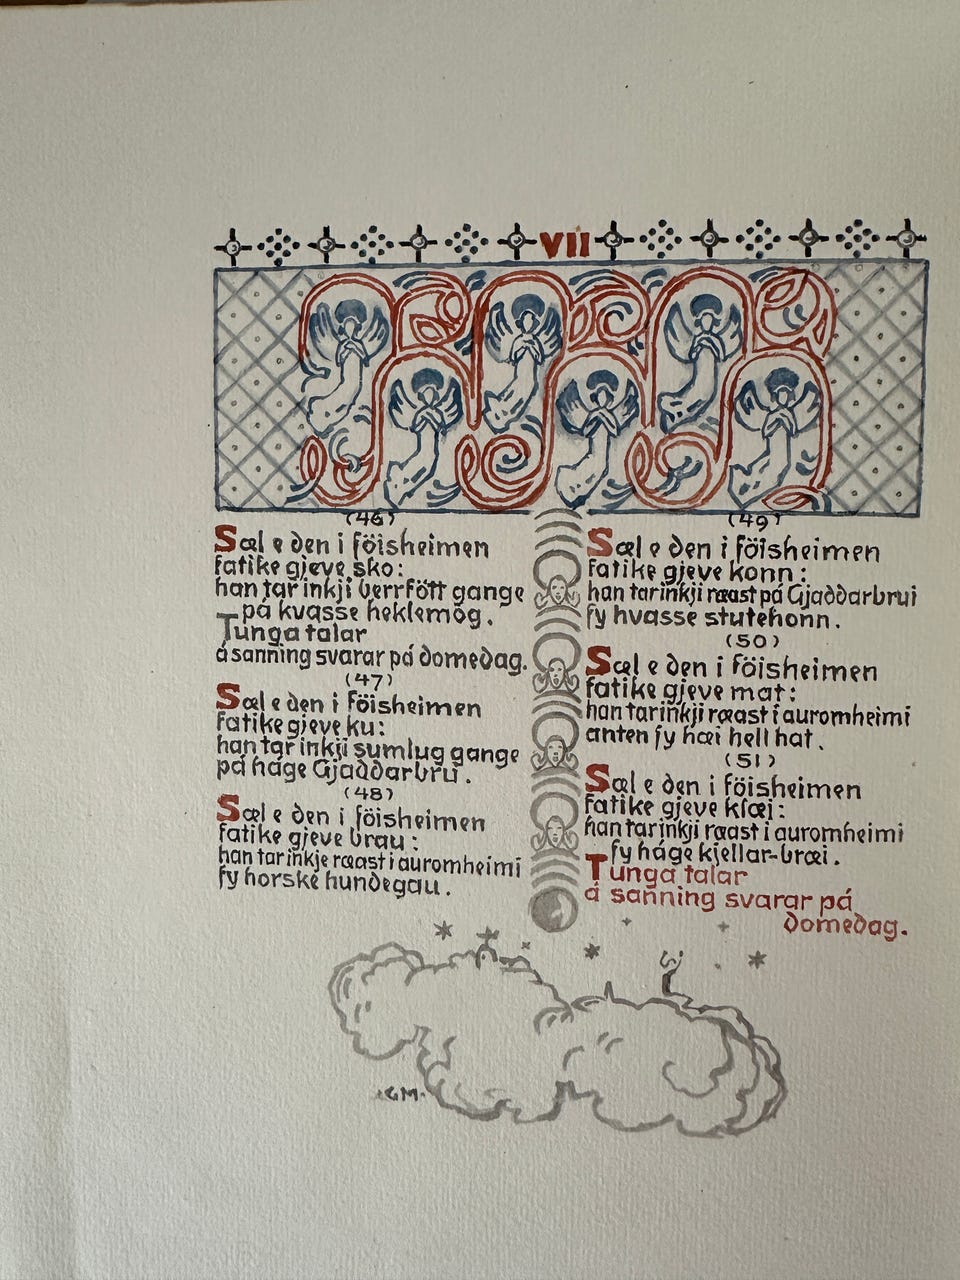 VII
(46)
Sæl e den i föisheimen
fatike gjeve sko:
han tar inkji berrfött gange
på kvasse heklemog.
Tunga talar
å sanning svarar på domedag.
(47)
Sæl e den i föisheimen
fatike gjeve ku:
han tar inkji sumlug gange
på håge Gjaddarbru.
(48)
Sæl e den i föisheimen
fatike gjeve brau:
han tar inkje ræast i auromheimi
fy horske hundegau.
(49)
Sæl e den i föisheimen
fatike gjeve konn:
han tar inkji ræast på Gjaddarbrui
fy hvasse stutehonn.
(50)
Sæl e den i föisheimen
fatike gjeve mat:
han tar inkji ræast i auromheimi
anten fy hæi hell hat.
(51)
Sæl e den i föisheimen
fatike gjeve klæj:
han tar inkji ræast i auromheimi
fy håge kjellar-bræi.
Tunga talar
å sanning svarar på
domedag.
GM.